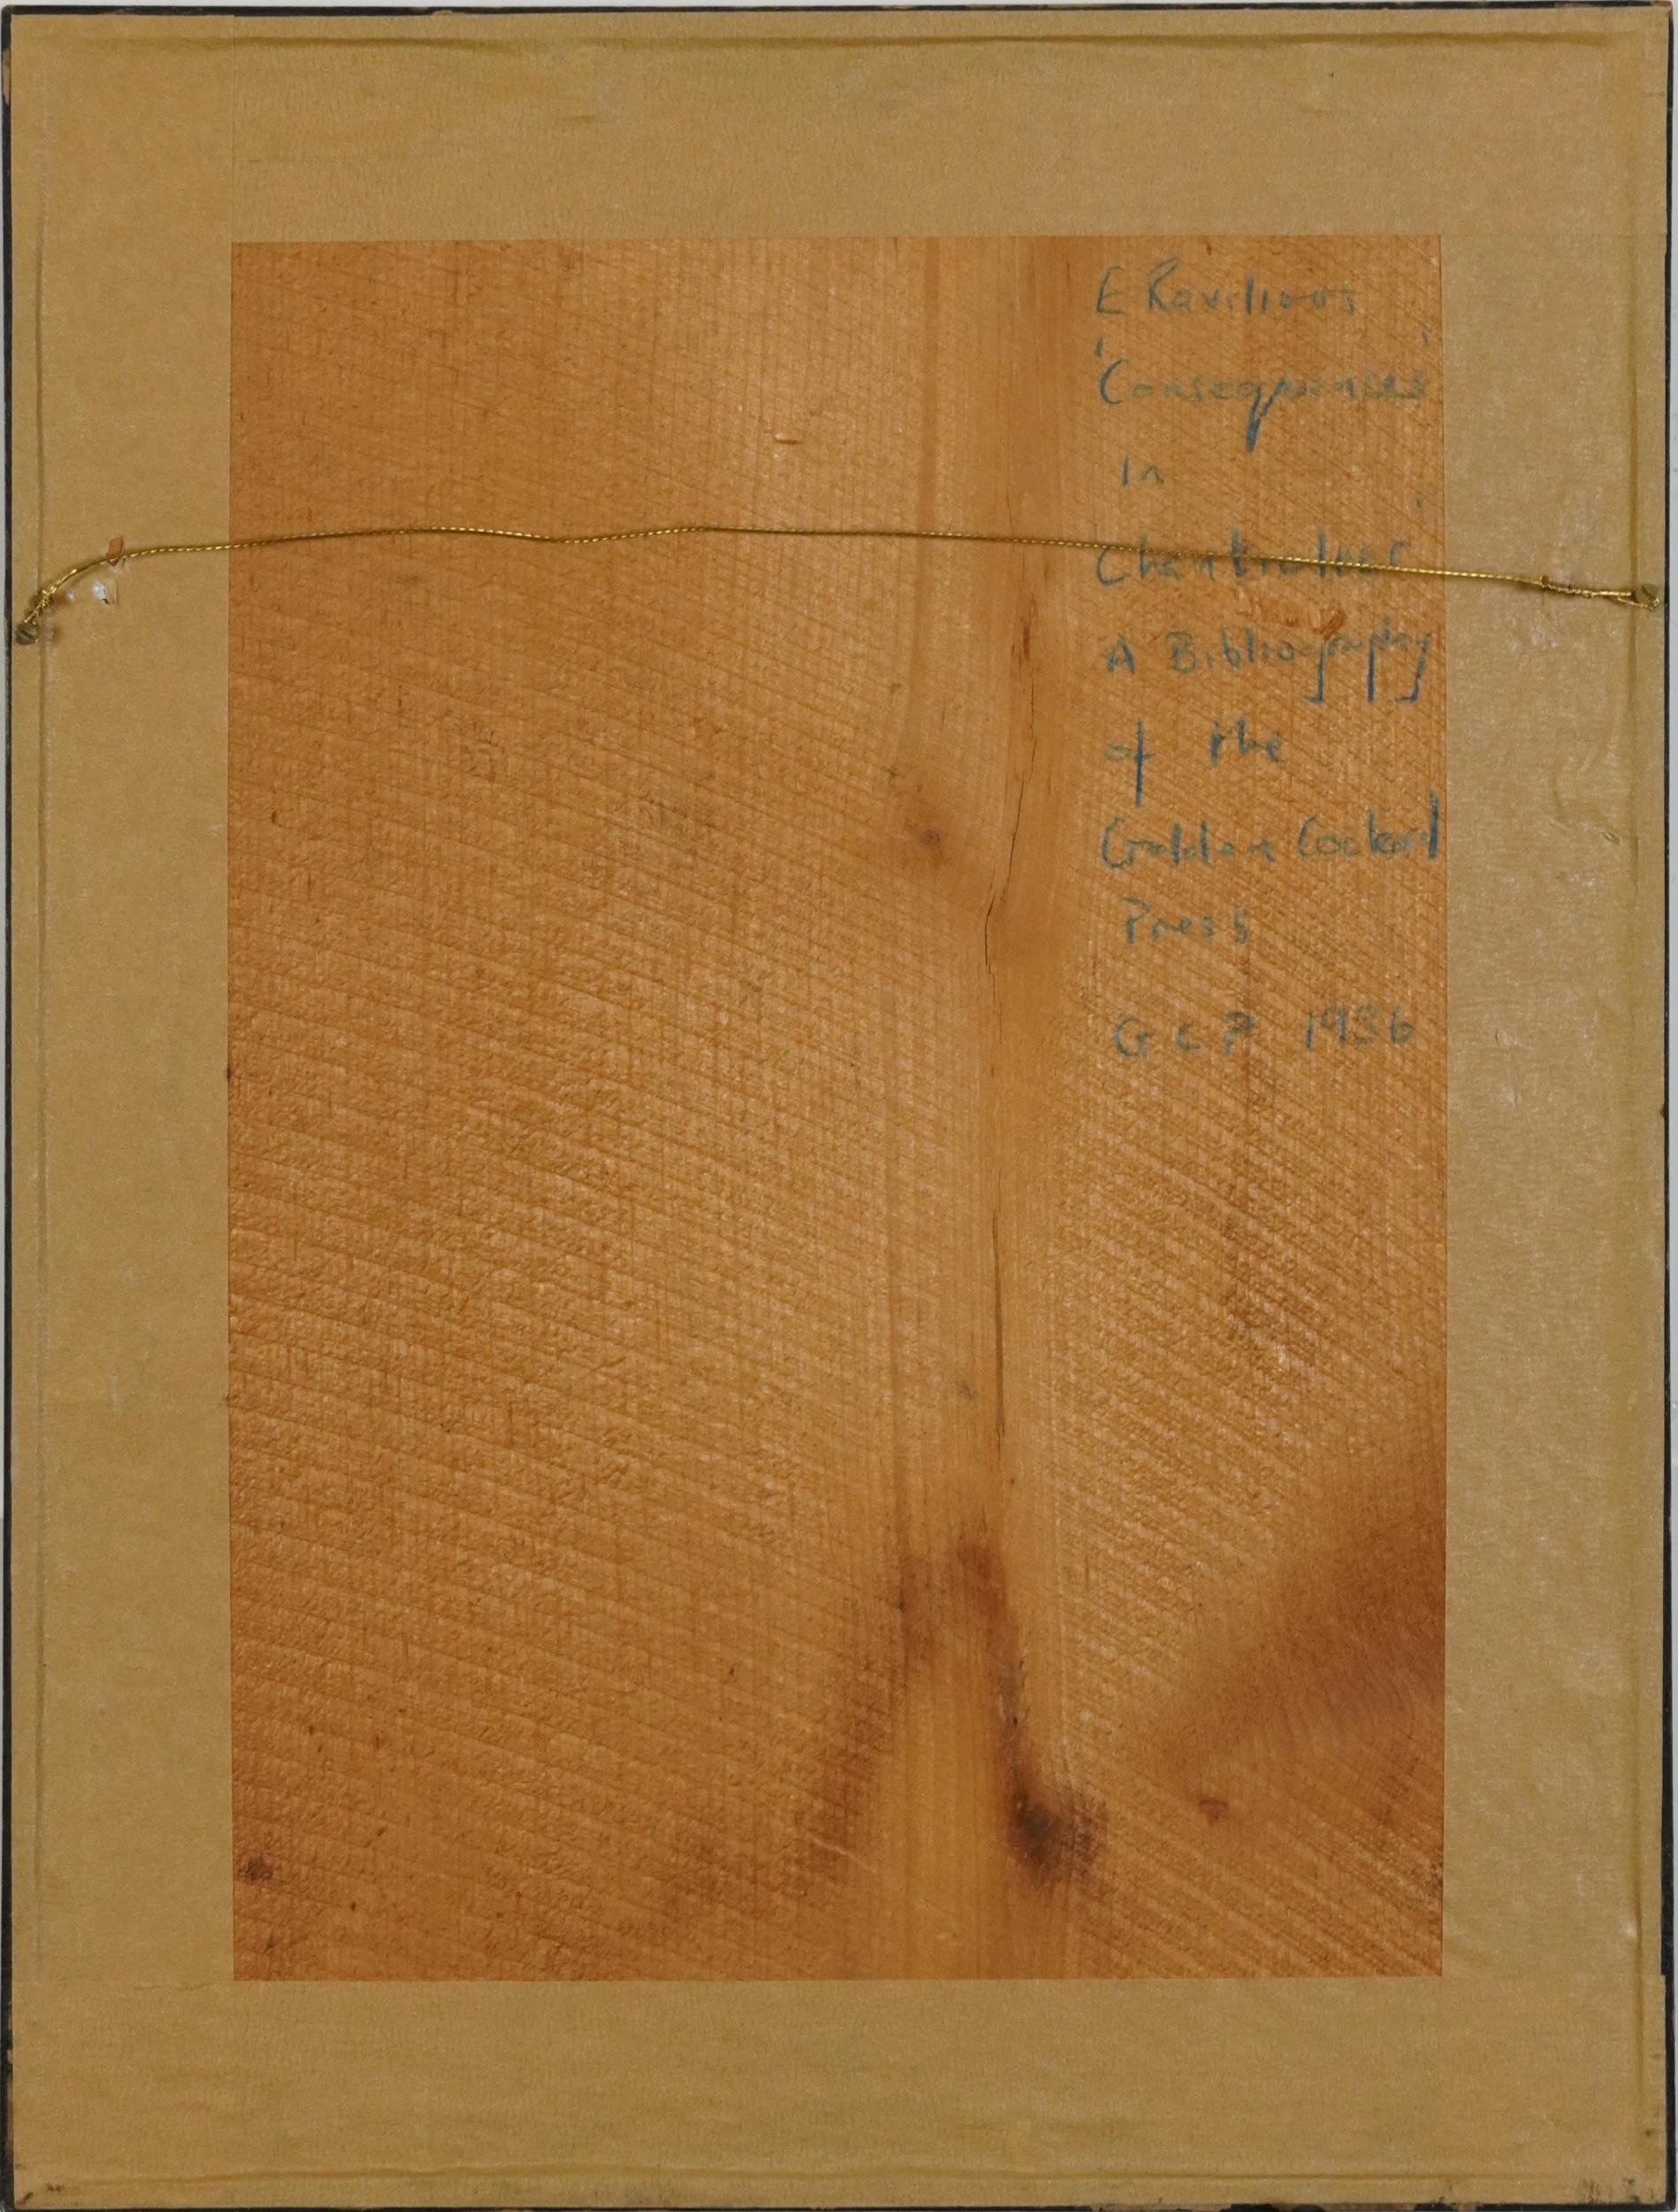 E Ravilious
'Consequences'
in
Chanticleer
A Bibliography
of the
Golden Cockerel
Press
G C P 1936